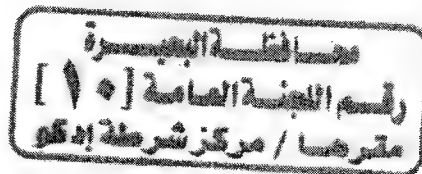 محافظة البحيرة
رقم اللجنة العامة [١٠]
مقرها / مركز شرطة إدكو